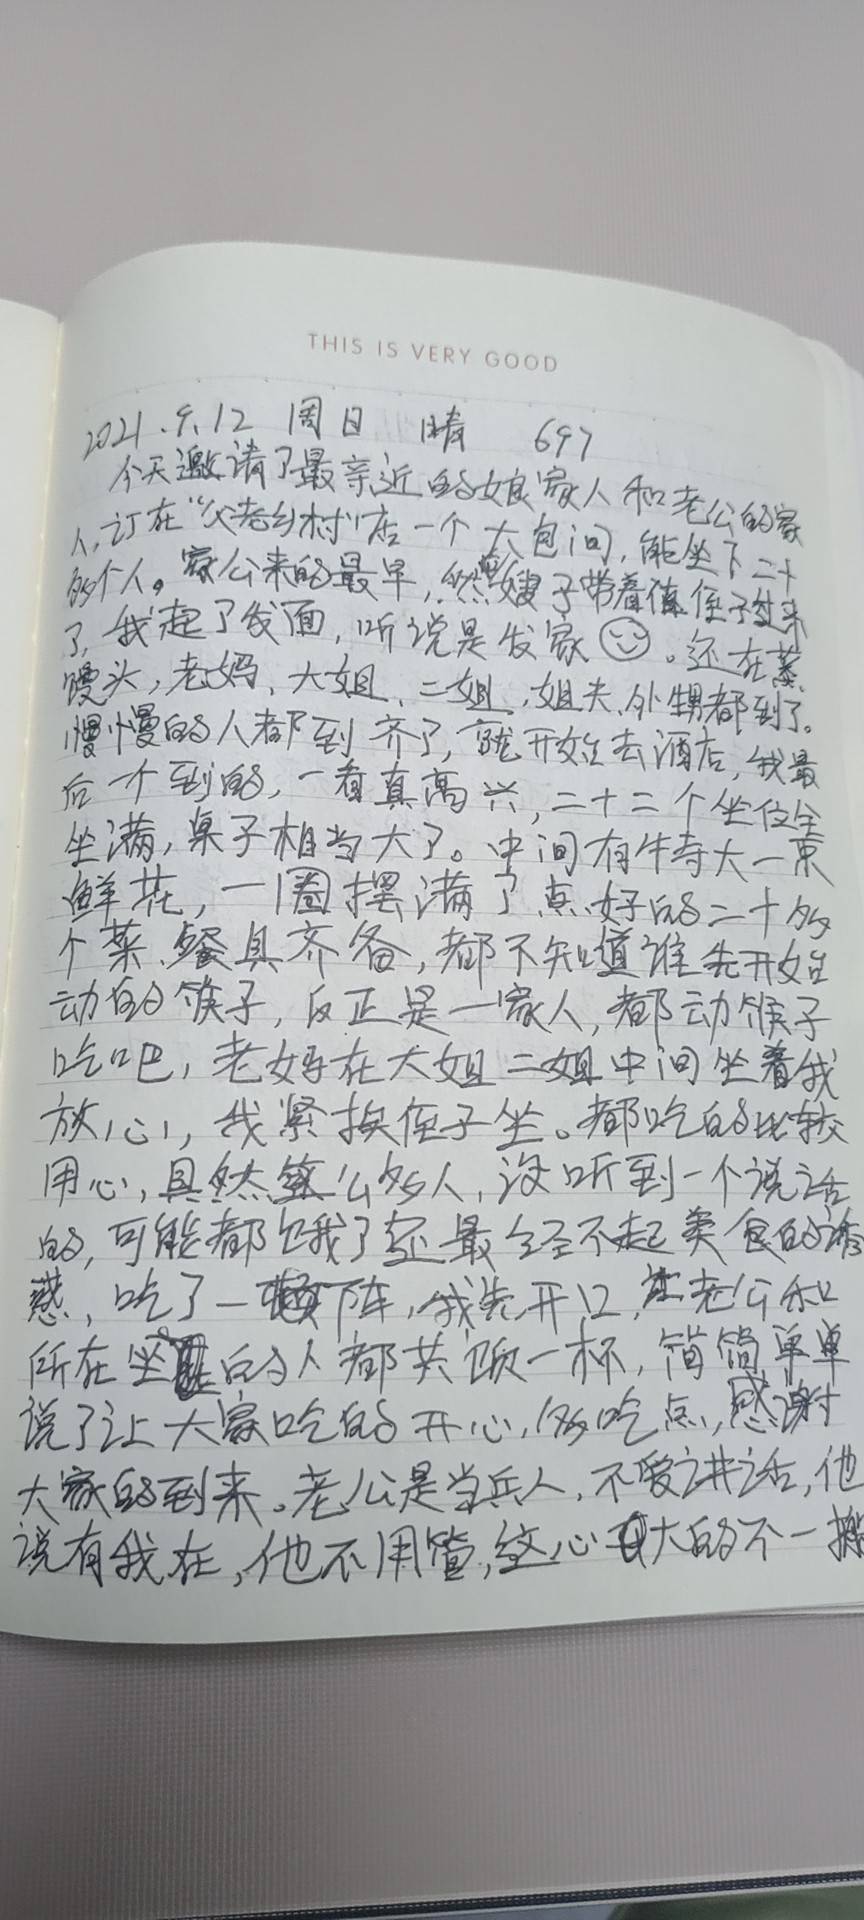 THIS IS VERY GOOD
2021.9.12 周日 晴 697
今天邀请了最亲近的娘家人和老公的家
人,订在“父老乡村”店一个大包间,能坐下二十
多个人。家公来的最早,然嫂子带着侄子过来
了,我起了发面,听说是发家。还在蒸
馒头,老妈、大姐、二姐,姐夫、外甥都到了。
慢慢的人都到齐了,就开始去酒店,我最
后一个到的,一看真高兴,二十二个坐位全
坐满,桌子相当大了。中间有牛寺大一束
鲜花,一圈摆满了点好的二十多
个菜、餐具齐备,都不知道谁先开始
动的筷子,反正是一家人,都动筷子
吃吧,老妈在大姐二姐中间坐着我
放心,我紧挨侄子坐。都吃的比较
用心,具然这么多人,没听到一个说话
的,可能都饿了还最经不起美食的诱
惑,吃了一下阵,我先开口,老公和
所在坐的人都共饮一杯,简简单单
说了让大家吃的开心,多吃点,感谢
大家的到来。老公是当兵人,不爱讲话,他
说有我在,他不用管,这心大的不一般